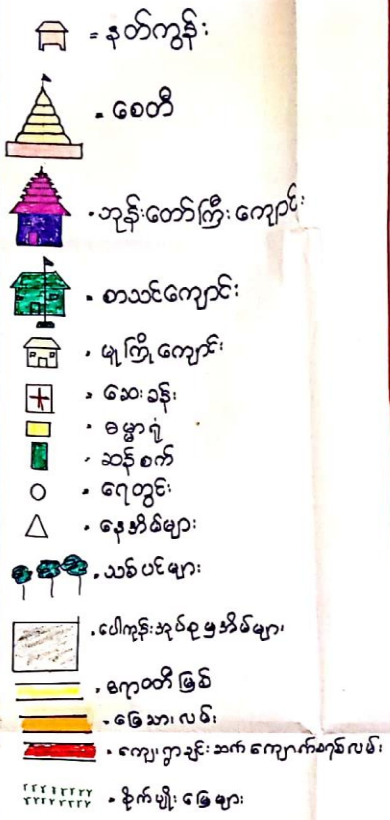 = နတ်ကွန်း
= စေတီ
= ဘုန်းတော်ကြီးကျောင်း
= စာသင်ကျောင်း
= မူကြိုကျောင်း
= ဆေးခန်း
= ဓမ္မာရုံ
= ဆန်စက်
= ရေတွင်း
= နေအိမ်များ
= သစ်ပင်များ
= ပေါကုန်းအုပ်စုမှအိမ်များ
= ဧရာဝတီမြစ်
= မြေသားလမ်း
= ကျေးရွာချင်းဆက် ကျောက်ခရစ်လမ်း
= စိုက်ပျိုးမြေများ